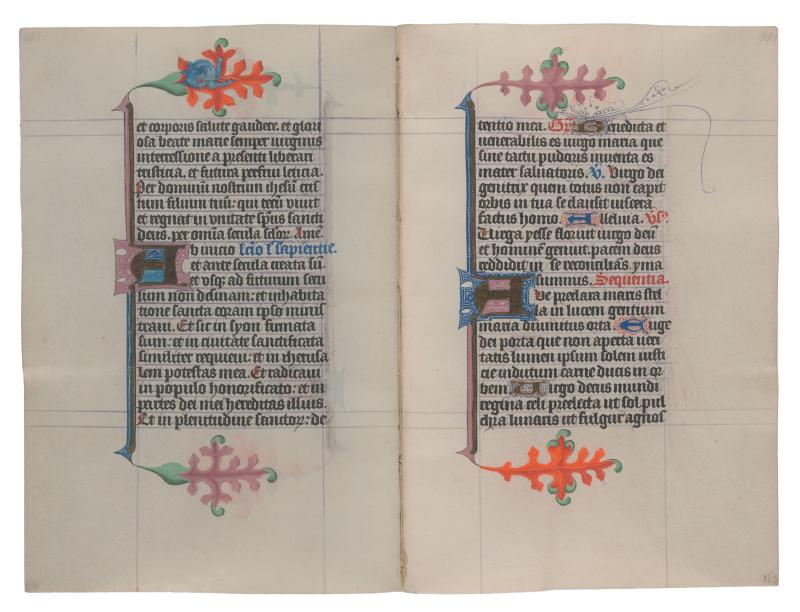 et corporis salute gaudere. et glori
osa beate marie semper virginis
intercessione a presenti liberari
tristicia. et futura perfrui leticia.
Per dominū nostrum ihesū cris
tum filium tuū: qui tecū vivit
et regnat in vnitate spūs sancti
deus. per om̄ia secula sclor. Amē.
Ab inicio lc̄io l' sapientie.
et ante secula creata sū.
et vsq; ad futurum secu
lum non desinam: et in habita
tione sancta coram ipso minis
travi. Et sic in syon firmata
sum: et in civitate sanctificata
similiter requievi: et in iherusa
lem potestas mea. Et radicavi
in populo honorificato: et in
partes dei mei hereditas illius.
Et in plenitudine sanctor: de
tentio mea. Gr̄ Benedicta et
venerabilis es virgo maria que
sine tactu pudoris inventa es
mater salvatoris. V. Virgo dei
genitrix quem totus non capit
orbis in tua se clausit viscera
factus homo. Alleluia. Vs
Virga yesse floruit virgo deū
et hominē genuit. pacem deus
reddidit in se reconciliās yma
summis. Sequentia.
Ave preclara maris stel
la in lucem gentium
maria divinitus orta. Euge
dei porta que non aperta veri
tatis lumen ipsum solem iusti
cie indutum carne ducis in or
bem Virgo decus mundi
regina celi preelecta ut sol. pul
chra lunaris ut fulgur agnos